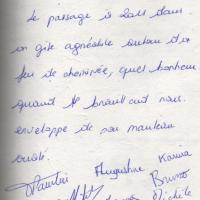 Le passage à 2011 dans
un gîte agréable autour d'un
feu de cheminée, quel bonheur
quand le brouillard nous
enveloppe de son manteau
ouaté.
Augustine Karina
Bruno
Michèle